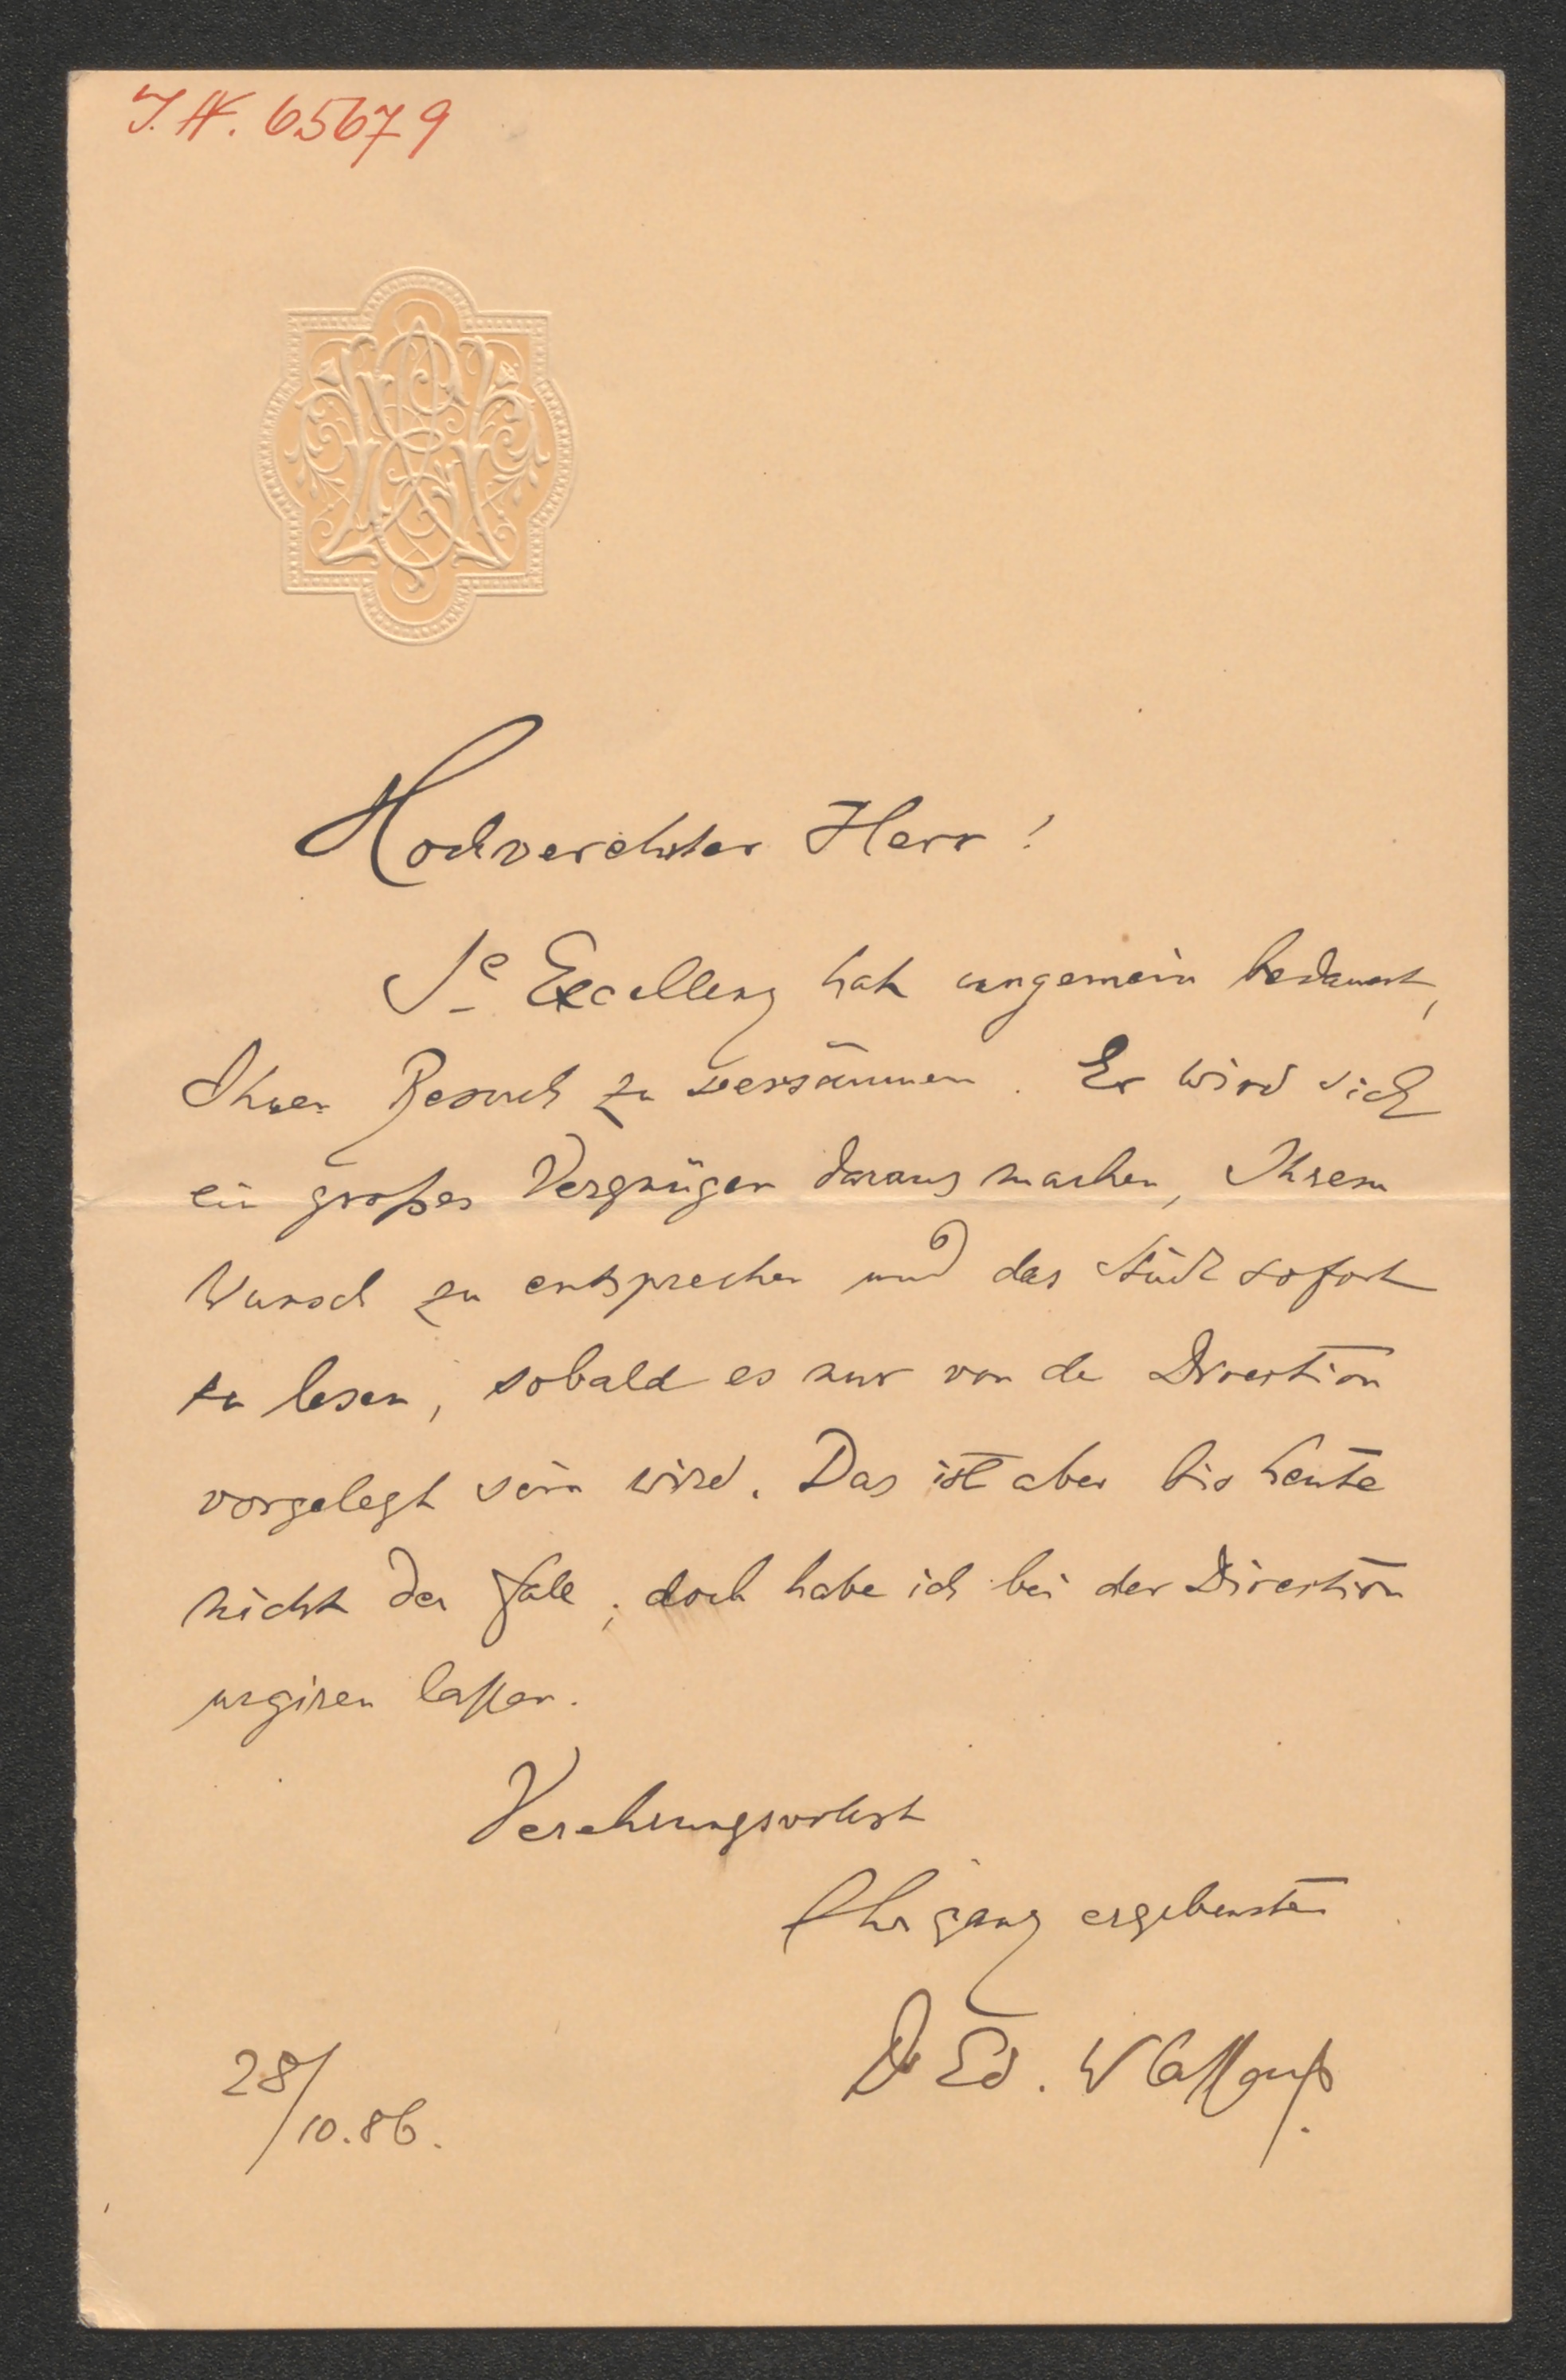 I.N. 65679
Hochverehrter Herr!
Se Excellenz hat ungemein bedauert,
Ihren Besuch zu versäumen. Er wird sich
ein großes Vergnügen daraus machen, Ihrem
Wunsch zu entsprechen und das Stück sofort
zu lesen, sobald es nur von der Direction
vorgelegt sein wird. Das ist aber bis heute
nicht der Fall; doch habe ich bei der Direction
urgiren lassen.
Verehrungsvollst
Ihr ganz ergebenster
Dr Ed. Wlassack.
28/10.86.